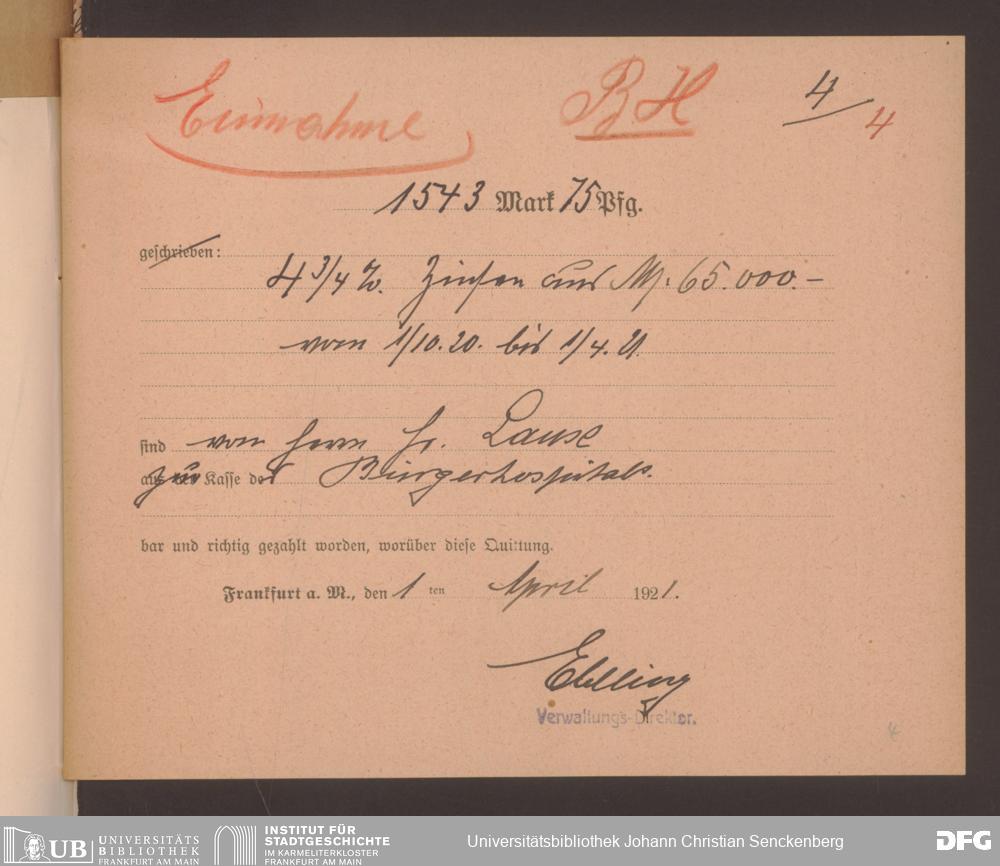 Einnahme
BH
4
4
1543 Mark 75 Pfg.
geschrieben:
4 3/4 %. Zinsen aus M. 65.000.–
vom 1/10.20. bis 1/4.21.
sind von Herrn Fr. Lause
zur Kasse des Bürgerhospitals.
bar und richtig gezahlt worden, worüber diese Quittung.
Frankfurt a. M., den 1ten April 1921.
Ebelling
Verwaltungs-Direktor.
4
UB UNIVERSITÄTS BIBLIOTHEK FRANKFURT AM MAIN
INSTITUT FÜR STADTGESCHICHTE IM KARMELITERKLOSTER FRANKFURT AM MAIN
Universitätsbibliothek Johann Christian Senckenberg
DFG